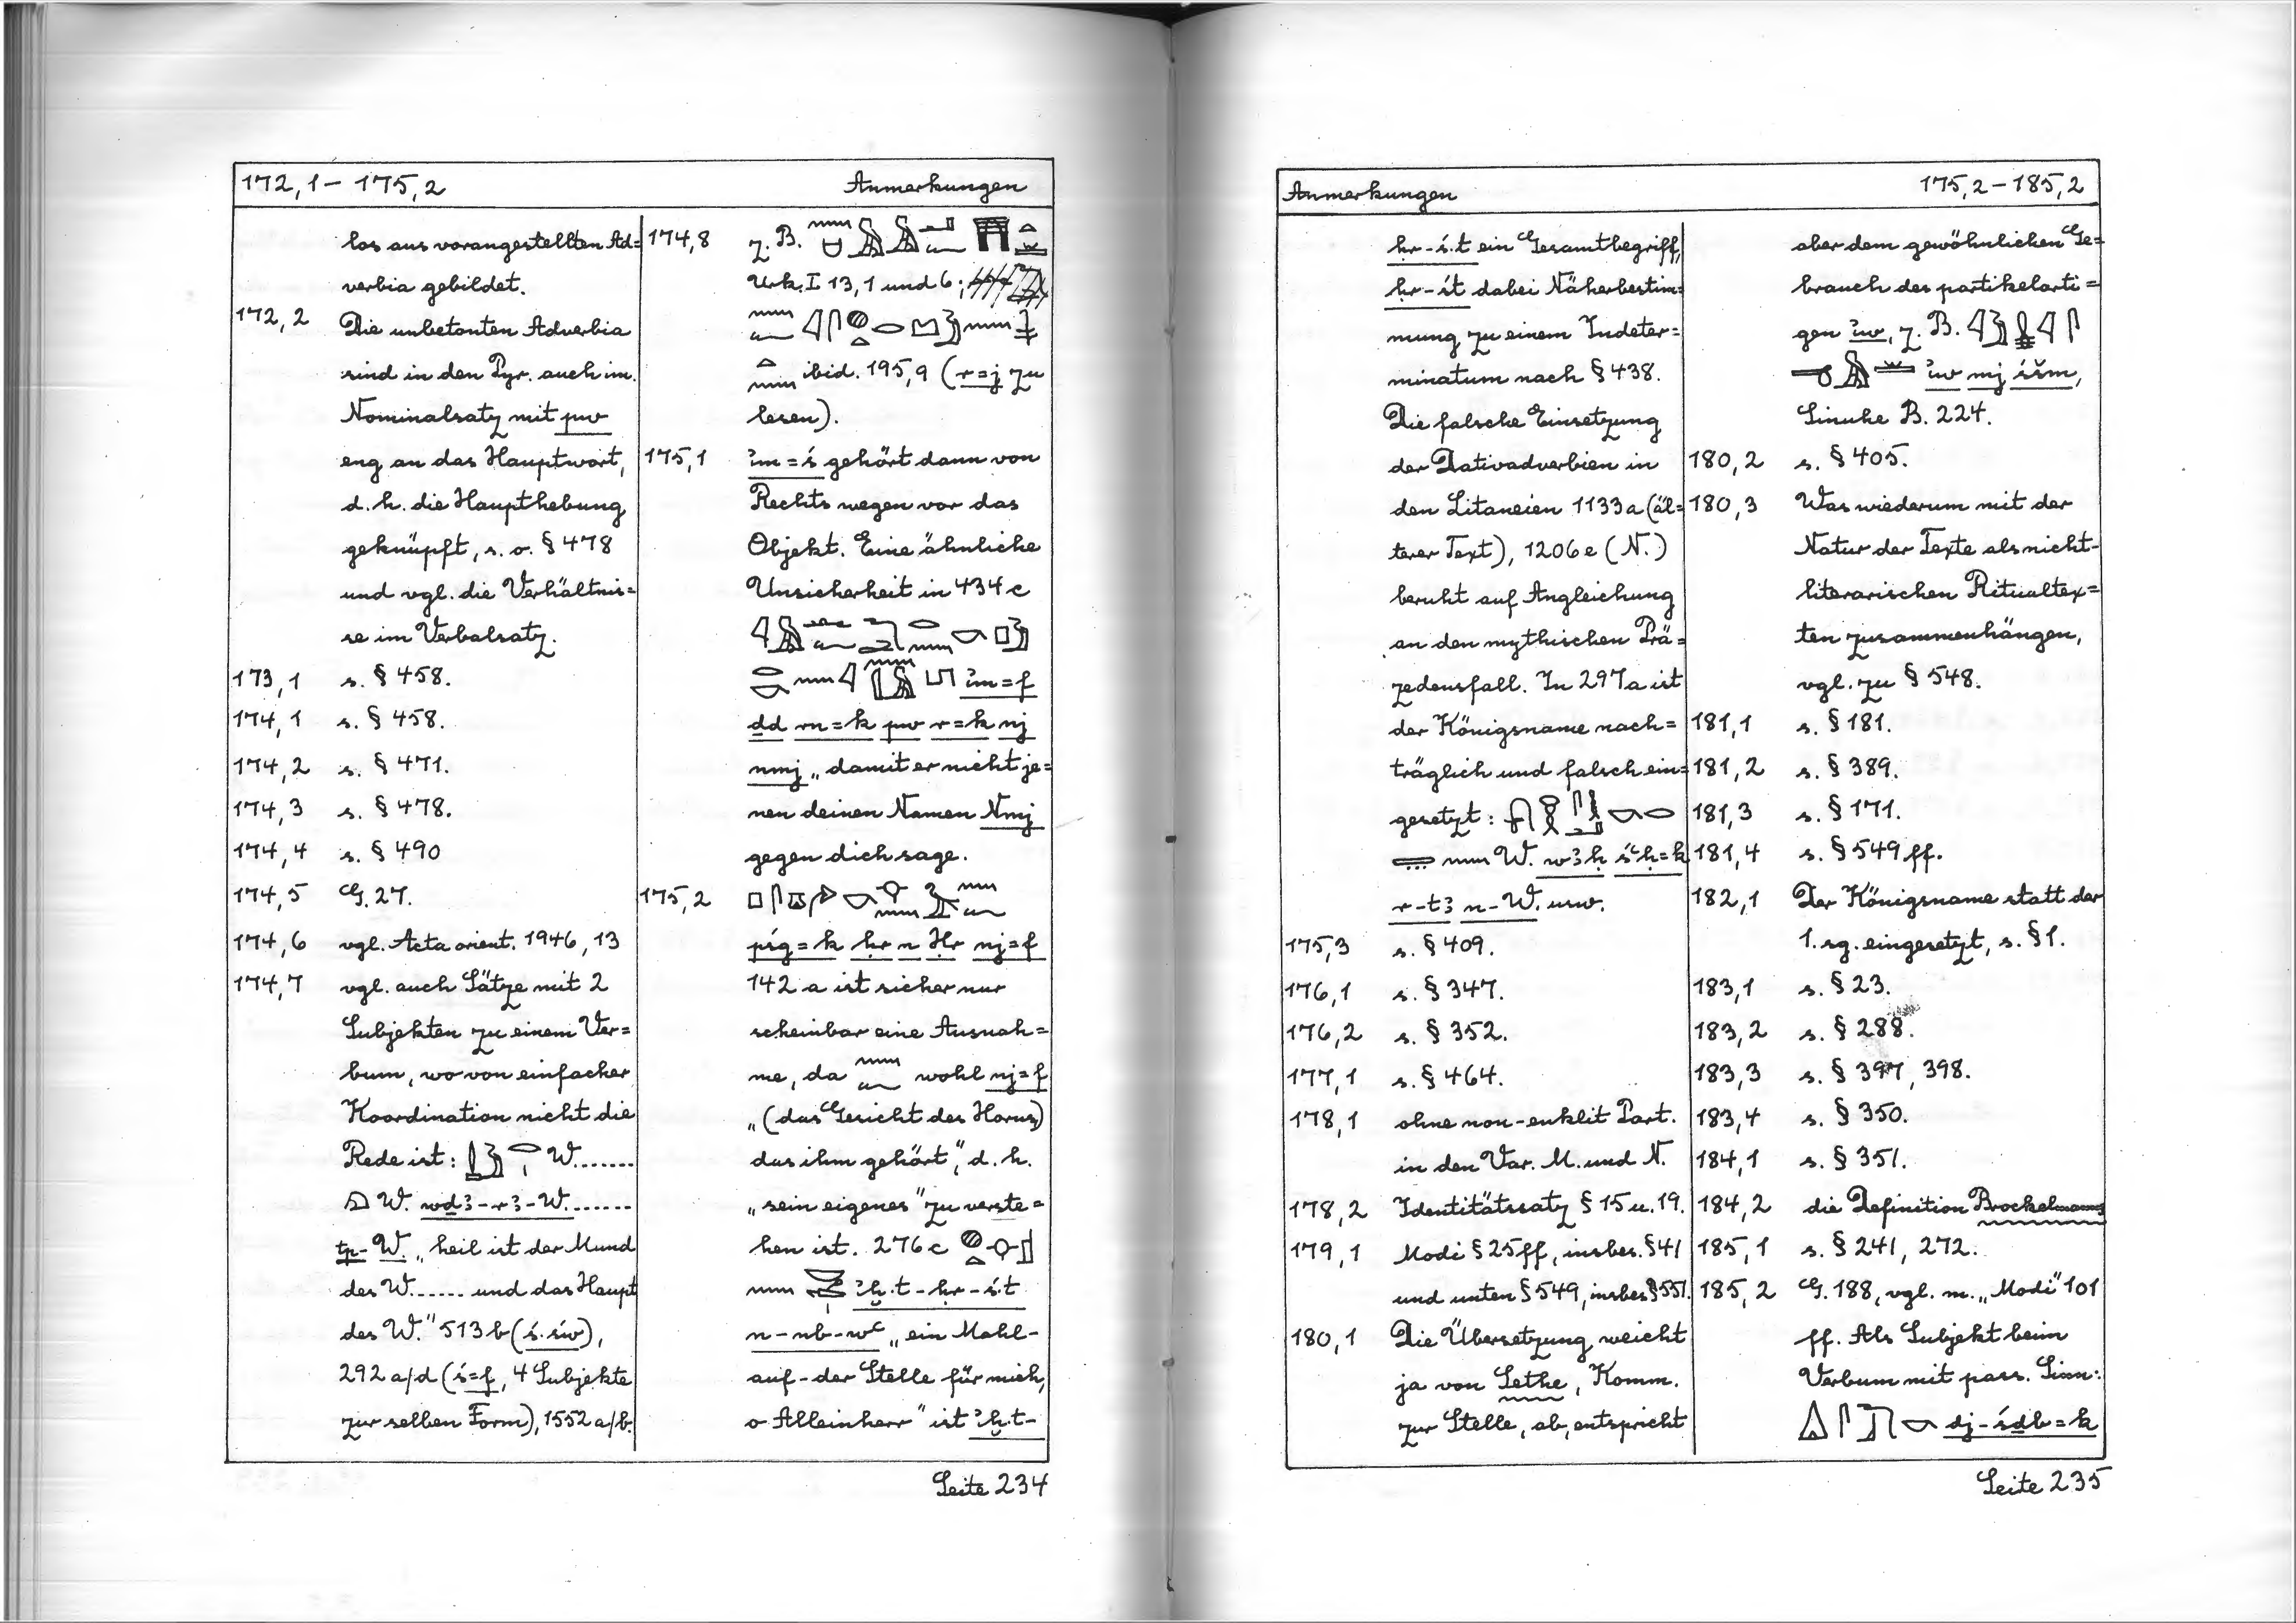 172,1 – 175,2 Anmerkungen
los aus vorangestellten Ad=
verbia gebildet.
172,2 Die unbetonten Adverbia
sind in den Pyr. auch im
Nominalsatz mit pw
eng an das Hauptwort,
d.h. die Haupthebung
geknüpft, s.o. § 478
und vgl. die Verhältnis=
se im Verbalsatz.
173,1 s. § 458.
174,1 s. § 458.
174,2 s. § 471.
174,3 s. § 478.
174,4 s. § 490
174,5 G. 27.
174,6 vgl. Acta orient. 1946, 13
174,7 vgl. auch Sätze mit 2
Subjekten zu einem Ver=
bum, wo von einfacher
Koordination nicht die
Rede ist: W.......
W. wḏꜣ-rꜣ-W.......
tp-W. „heil ist der Mund
des W...... und das Haupt
des W." 513 b (ś.św),
292 a/d (ś=f, 4 Subjekte
zur selben Form), 1552 a/b.
174,8 z.B.
Urk. I 13,1 und 6;
ibid. 195,9 (r=j zu
lesen).
175,1 ı͗m=ś gehört dann von
Rechts wegen vor das
Objekt. Eine ähnliche
Unsicherheit in 434 c
ı͗m=f
ḏd rn=k pw r=k nj
nmj „damit er nicht je=
nen deinen Namen Nmj
gegen dich sage.
175,2
pśg=k ḥr n Ḥr nj=f
142 a ist sicher nur
scheinbar eine Ausnah=
me, da wohl nj=f
„(das Gesicht des Horus)
das ihm gehört", d.h.
„sein eigenes" zu verste=
hen ist. 276 c
ı͗ḫ.t-ḥr-ś.t
n-nb-wꜥ „ein Mahl-
auf-der Stelle für mich,
o Alleinherr" ist ı͗ḫ.t-
Seite 234
Anmerkungen 175,2 – 185,2
ḥr-ś.t ein Gesamtbegriff,
ḥr-śt dabei Näherbestim=
mung zu einem Indeter=
minatum nach § 438.
Die falsche Einsetzung
der Dativadverbien in
den Litaneien 1133 a (äl=
terer Text), 1206 e (N.)
beruht auf Angleichung
an den mythischen Prä=
zedensfall. In 297 a ist
der Königsname nach=
träglich und falsch ein=
gesetzt:
W. wꜣḥ śꜥḥ=k
r-tꜣ n-W. usw.
175,3 s. § 409.
176,1 s. § 347.
176,2 s. § 352.
177,1 s. § 464.
178,1 ohne non-enklit Part.
in den Var. M. und N.
178,2 Identitätssatz § 15 u. 19.
179,1 Modi § 25 ff, insbes. § 41
und unten § 549, insbes § 551.
180,1 Die Übersetzung weicht
ja von Sethe, Komm.
zur Stelle, ab, entspricht
aber dem gewöhnlichen Ge=
brauch des partikelarti=
gen ı͗w, z.B.
ı͗w mj śšm,
Sinuhe B. 224.
180,2 s. § 405.
180,3 Was wiederum mit der
Natur der Texte als nicht-
literarischen Ritualtex=
ten zusammenhängen,
vgl. zu § 548.
181,1 s. § 181.
181,2 s. § 389.
181,3 s. § 171.
181,4 s. § 549 ff.
182,1 Der Königsname statt der
1. sg. eingesetzt, s. § 1.
183,1 s. § 23.
183,2 s. § 288.
183,3 s. § 397, 398.
183,4 s. § 350.
184,1 s. § 351.
184,2 die Definition Brockelmanns
185,1 s. § 241, 272.
185,2 G. 188, vgl. m. „Modi" 101
ff. Als Subjekt beim
Verbum mit pass. Sinn:
dj-śdb=k
Seite 235